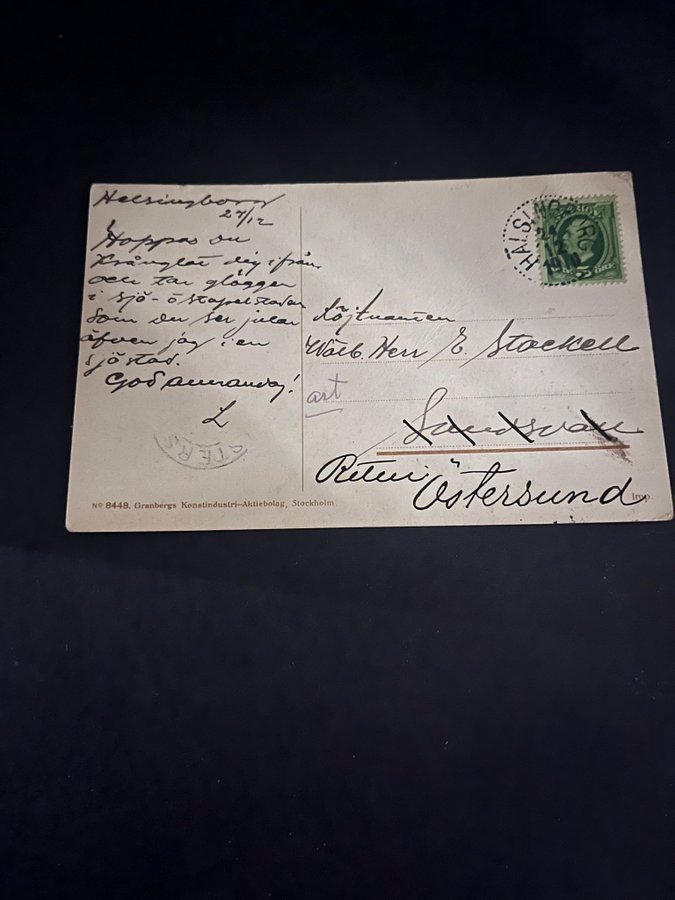 Helsingborg
27/12
Hoppas du
krånglat dig ifrån
och tar glöggen
i sjö- o stapelstaden
Som du ser julas
äfven jag i en
sjöstad.
God annandag!
L
HÄLSINGBORG
24
12
1910
5 ÖRE
Löjtnanten
Wälb. Herr E. Stockell
art
Sundsvall
Retur Östersund
ÖSTERS
No 8448. Granbergs Konstindustri-Aktiebolag, Stockholm
Imp.